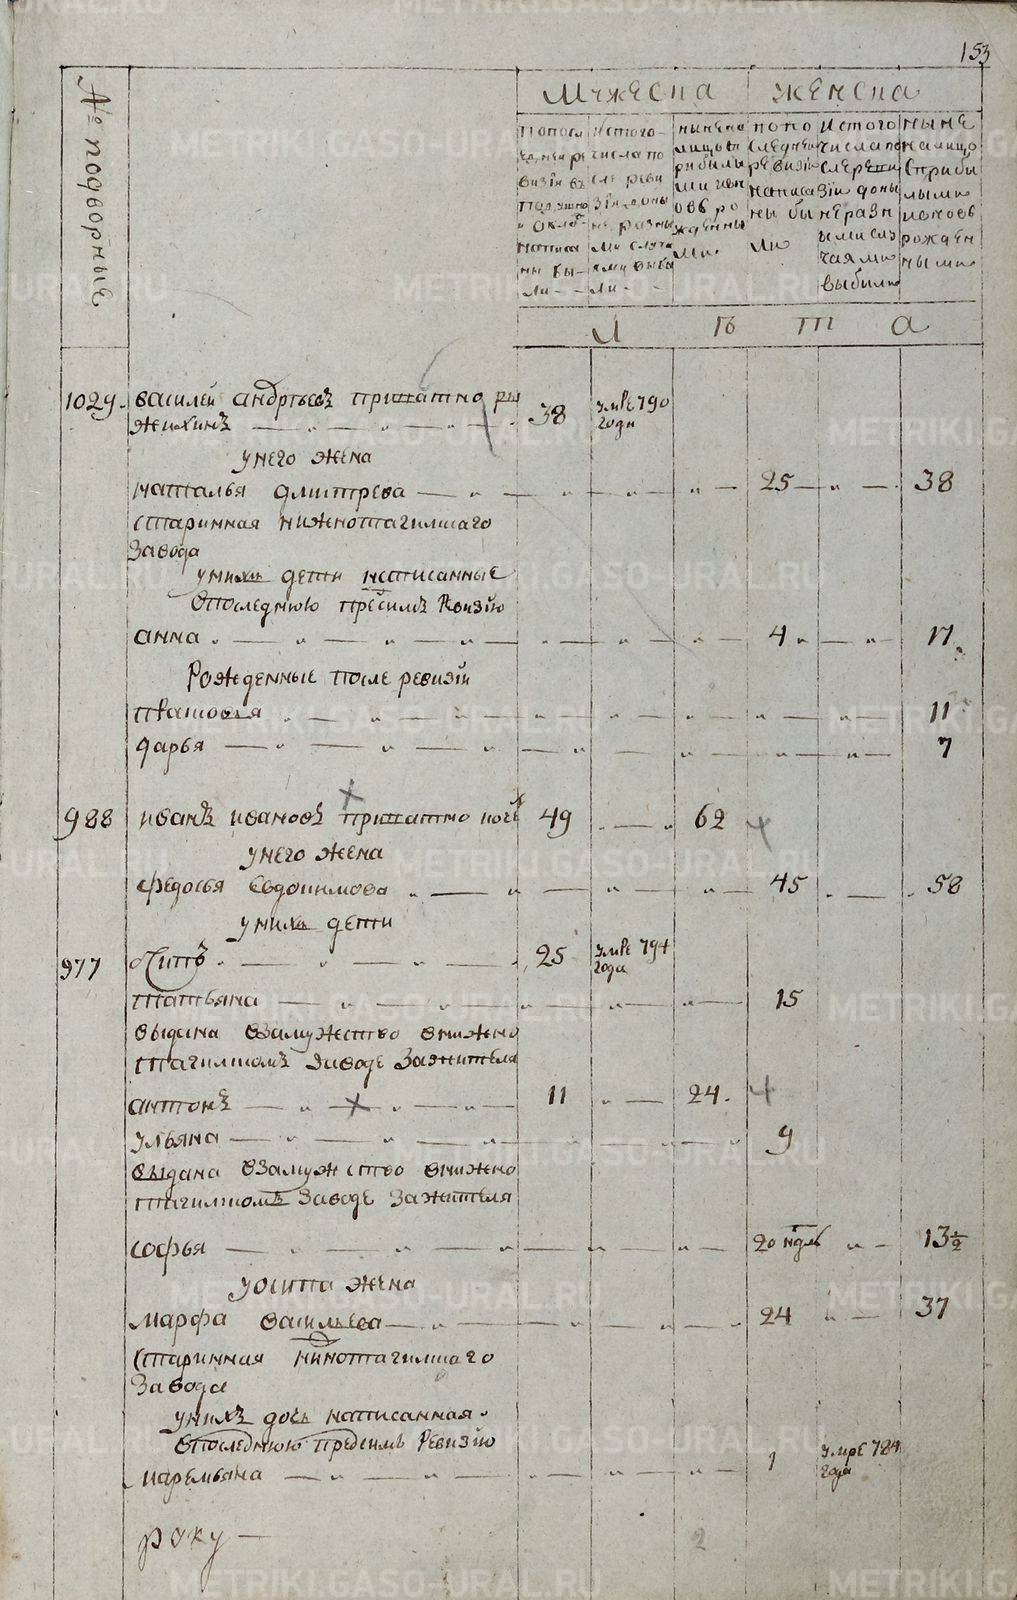 153
№ подворные
мужеска женска
по после
дней ре
визiи въ
подушно
написа
ны бы-
ли - -
ис того
числа по
сле реви
зiи доны
не разны
ми случа
ями выбы
ли - -
ныне на
лицо съ п
рибылы
ми и вн
овь ро
жденны
ми
по по
следней
ревизiи
написа
ны бы
ли
ис того
числа по
сле реви
зiи доны
не разн
ыми слу
чаями
выбыли
ныне
на лицо
с прибы
лыми
и вновь
рожден
ными
л ѣ т а
1029. василей андреевъ
жихинъ 38 умре 790
года
у него жена
наталья дмитрева 25 38
старинная нижнотагилскаго
завода
у нихъ дети написанные
в последнюю пред симъ ревизiю
анна 4 17
рожденные после ревизiи
прасковья 11
дарья 7
988 иванъ ивановъ 49 62
у него жена
федосья евдокимова 45 58
у нихъ дети
977 осипъ 25 умре 794
года
татьяна 15
выдана взамужество в нижно
тагилскомъ заводе за жителя
антонъ 11 24.
ульяна 9
выдана взамужство в нижно
тагилскомъ заводе за жителя
софья 20 нѣдль 13½
у осипа жена
марфа васильева 24 37
старинная нижнотагилскаго
завода
у нихъ дочь написанная
в последнюю пред симъ ревизiю
маремьяна 1 умре 784
года
року
2
METRIKI.GASO-URAL.RU